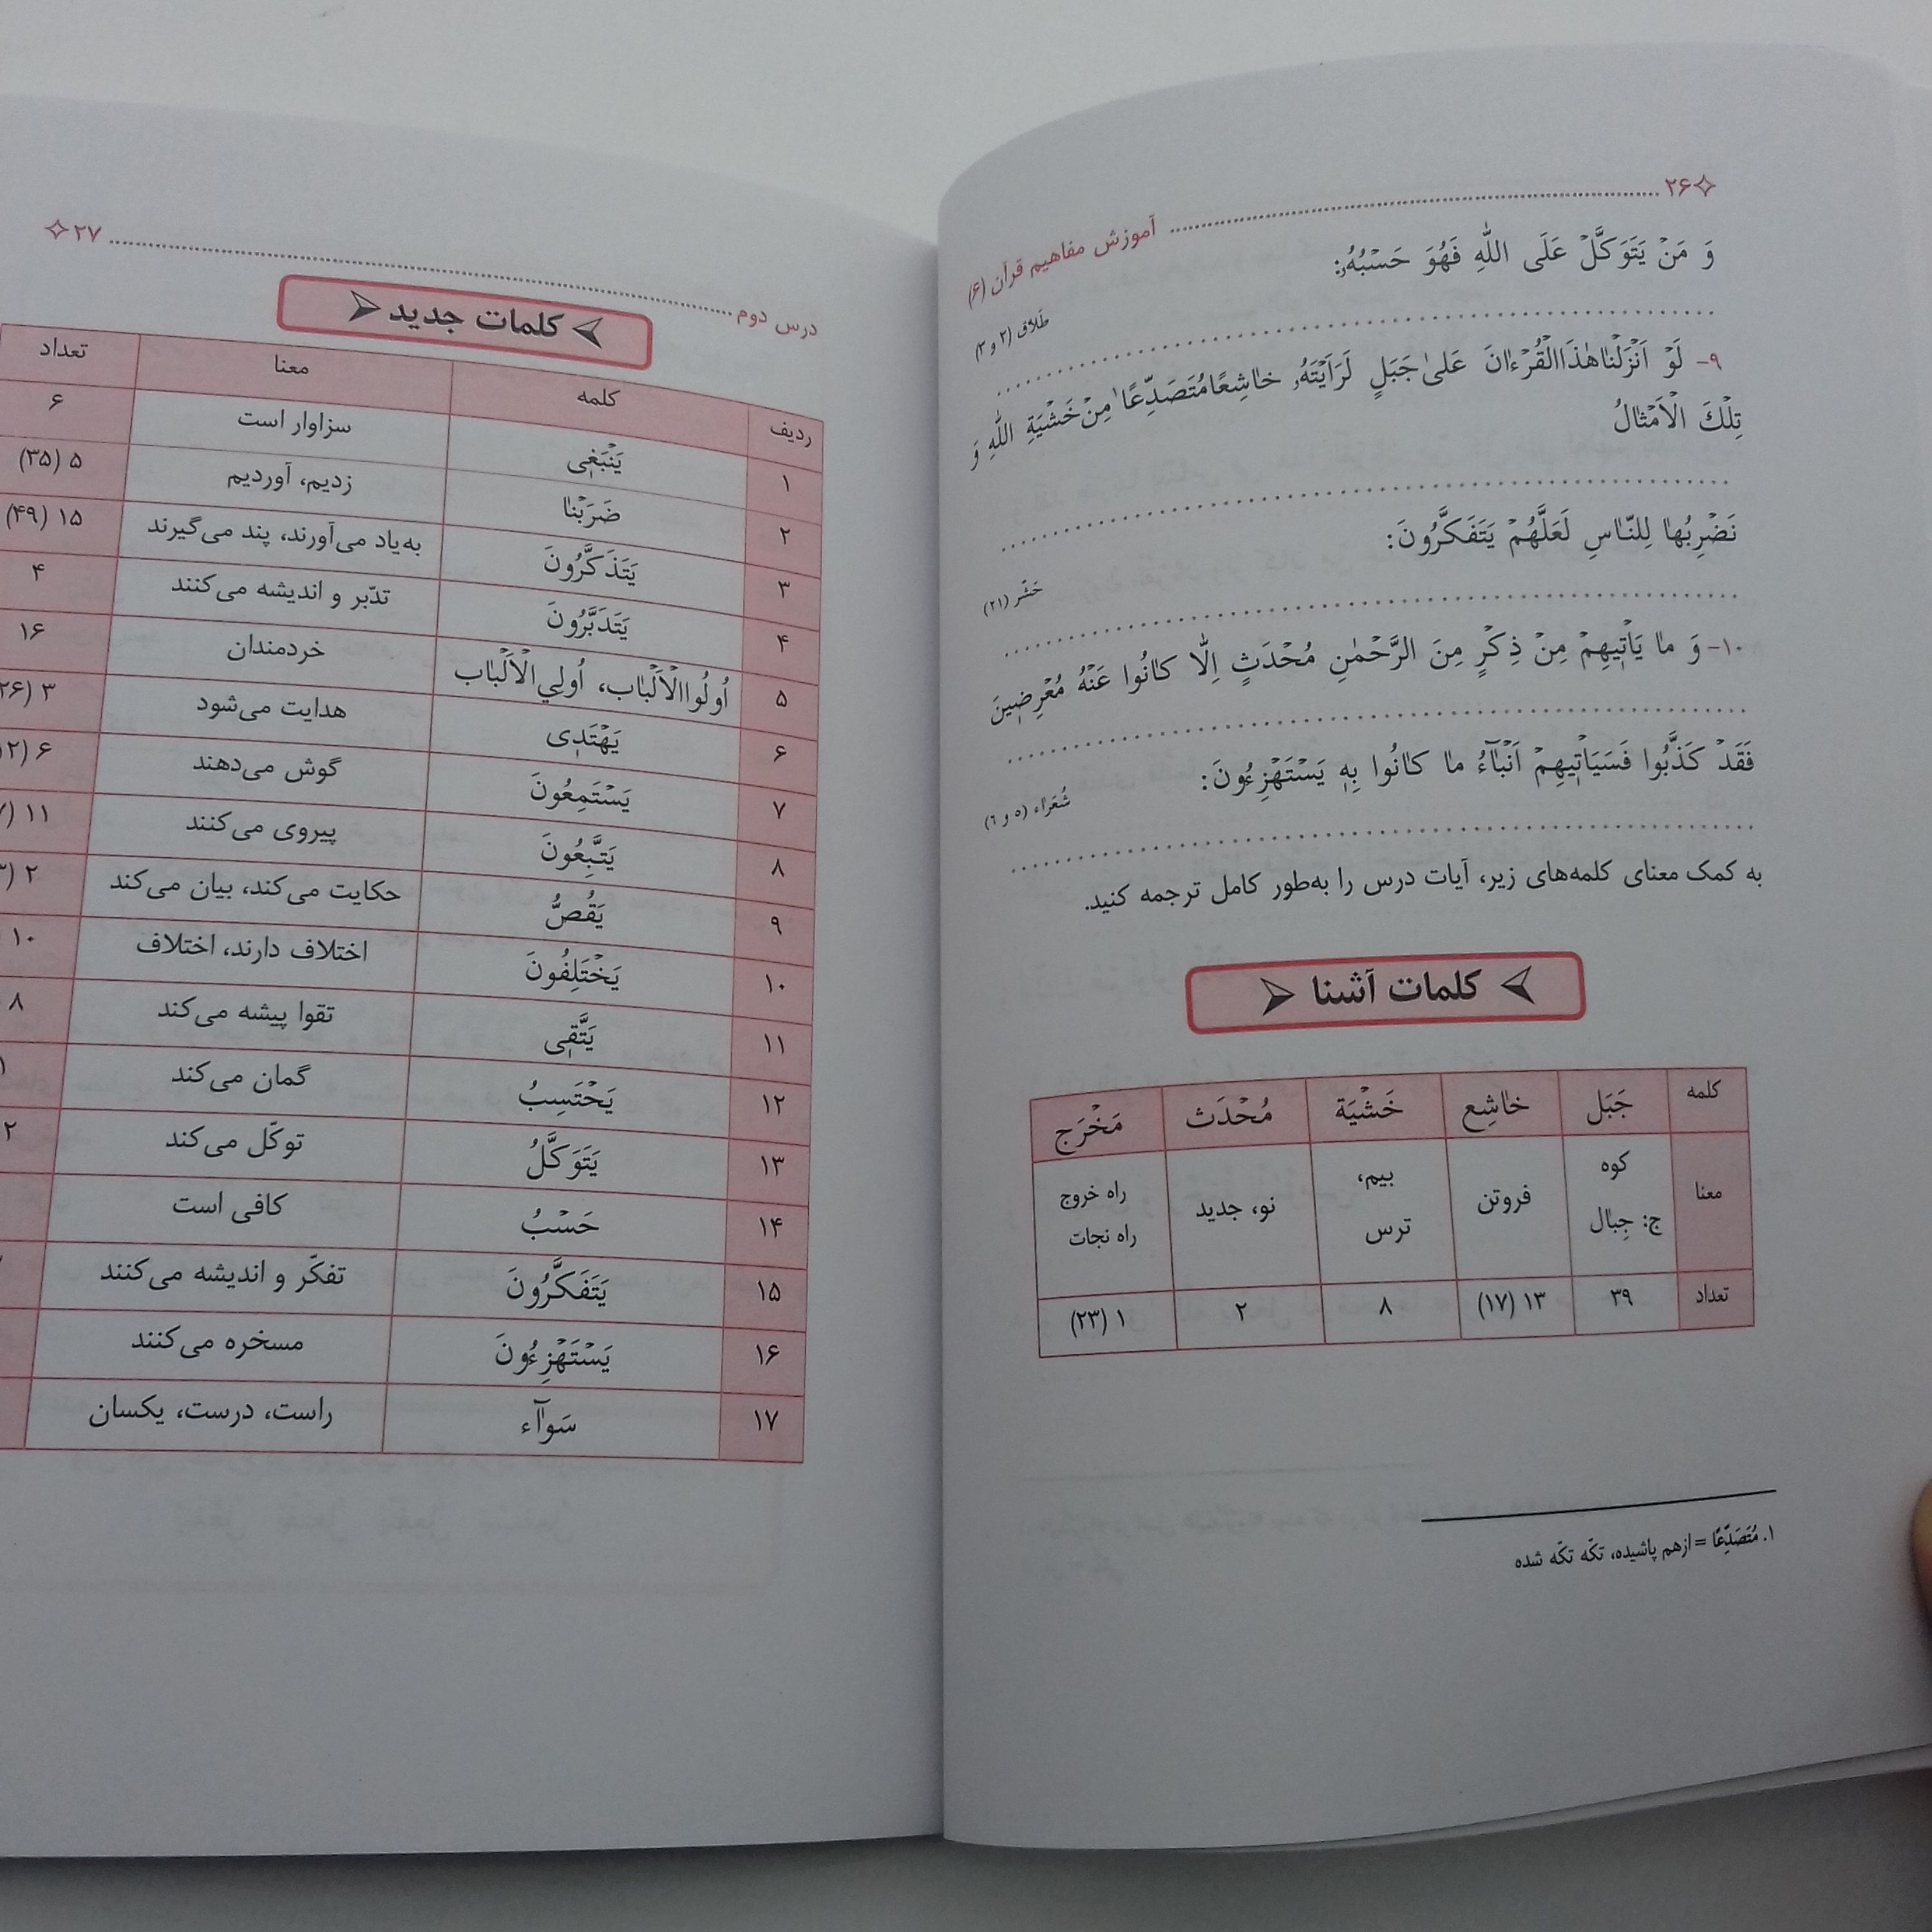 ۲۶ آموزش مفاهیم قرآن (۶)
وَ مَنْ یَتَوَكَّلْ عَلَى اللّٰهِ فَهُوَ حَسْبُهُ:
طَلاق (۲ و ۳)
۹- لَوْ اَنْزَلْنا هٰذَا الْقُرْءانَ عَلىٰ جَبَلٍ لَرَاَیْتَهُ خاشِعًا مُتَصَدِّعًا۱ مِنْ خَشْیَةِ اللّٰهِ وَ
تِلْكَ الْاَمْثالُ
نَضْرِبُها لِلنّاسِ لَعَلَّهُمْ یَتَفَكَّرُونَ:
حَشر (۲۱)
۱۰- وَ ما یَاْتیهِمْ مِنْ ذِكْرٍ مِنَ الرَّحْمٰنِ مُحْدَثٍ اِلّا كانُوا عَنْهُ مُعْرِضینَ
فَقَدْ كَذَّبُوا فَسَیَاْتیهِمْ اَنْبآءُ ما كانُوا بِهٖ یَسْتَهْزِءُونَ:
شُعَراء (۵ و ۶)
به کمک معنای کلمه‌های زیر، آیات درس را به‌طور کامل ترجمه کنید.
کلمات آشنا
کلمه جَبَل خاشِع خَشْیَة مُحْدَث مَخْرَج
معنا کوه ج: جِبال فروتن بیم، ترس نو، جدید راه خروج راه نجات
تعداد ۳۹ ۱۳ (۱۷) ۸ ۲ ۱ (۲۳)
۱. مُتَصَدِّعًا = ازهم پاشیده، تکّه تکّه شده
درس دوم ۲۷
کلمات جدید
ردیف کلمه معنا تعداد
۱ یَنْبَغی سزاوار است ۶
۲ ضَرَبْنا زدیم، آوردیم ۵ (۳۵)
۳ یَتَذَكَّرُونَ به‌یاد می‌آورند، پند می‌گیرند ۱۵ (۴۹)
۴ یَتَدَبَّرُونَ تدّبر و اندیشه می‌کنند ۴
۵ اُولُوا الْاَلْباب، اُولِي الْاَلْباب خردمندان ۱۶
۶ یَهْتَدی هدایت می‌شود ۳
۷ یَسْتَمِعُونَ گوش می‌دهند ۶
۸ یَتَّبِعُونَ پیروی می‌کنند ۱۱
۹ یَقُصُّ حکایت می‌کند، بیان می‌کند ۲
۱۰ یَخْتَلِفُونَ اختلاف دارند، اختلاف ۱۰
۱۱ یَتَّقی تقوا پیشه می‌کند ۸
۱۲ یَحْتَسِبُ گمان می‌کند
۱۳ یَتَوَكَّلُ توکّل می‌کند ۲
۱۴ حَسْبُ کافی است
۱۵ یَتَفَكَّرُونَ تفکّر و اندیشه می‌کنند
۱۶ یَسْتَهْزِءُونَ مسخره می‌کنند
۱۷ سَوآاء راست، درست، یکسان